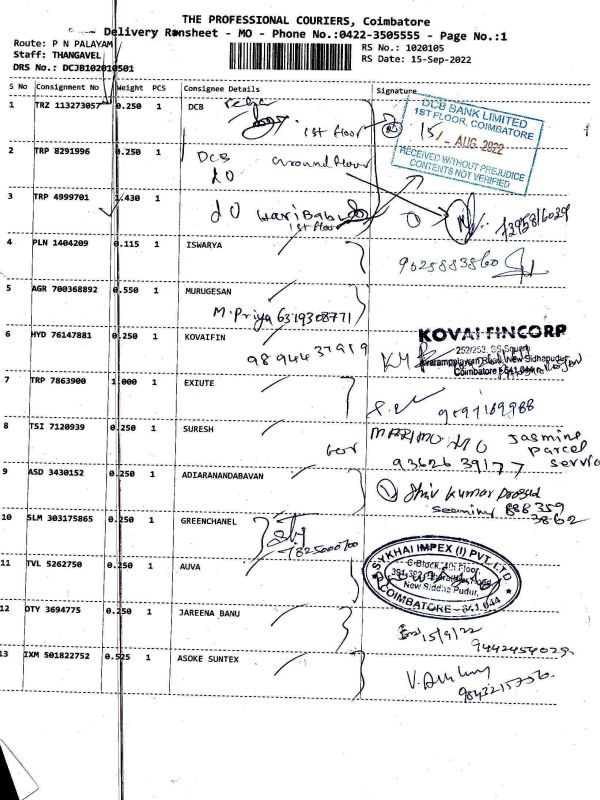 THE PROFESSIONAL COURIERS, Coimbatore
Delivery Runsheet - MO - Phone No.:0422-3505555 - Page No.:1
Route: P N PALAYAM
Staff: THANGAVEL
DRS No.: DCJB102010501
RS No.: 1020105
RS Date: 15-Sep-2022
S No Consignment No Weight PCS Consignee Details Signature
1 TRZ 113273057 0.250 1 DCB
1st floor
DCB BANK LIMITED
1ST FLOOR, COIMBATORE
15/- AUG 2022
RECEIVED WITHOUT PREJUDICE
CONTENTS NOT VERIFIED
2 TRP 8291996 0.250 1 DCB
do
Ground floor
3 TRP 4999701 1.430 1 do Hari Babu
1st floor
4 PLN 1404209 0.115 1 ISWARYA
9025883860
5 AGR 700368892 0.550 1 MURUGESAN
M. Priya 6319308771
6 HYD 76147881 0.250 1 KOVAIFIN
9894437919
KOVAI FINCORP
252/253, SS Square
Avarampalayam Road, New Sidhapudur,
Coimbatore - 641 044
7 TRP 7863900 1.000 1 EXIUTE
8 TSI 7120939 0.250 1 SURESH
Jasmine
Parcel
Service
93626 39177
9 ASD 3430152 0.250 1 ADIARANANDABAVAN
1 Shiv Kumar
10 SLM 303175865 0.250 1 GREENCHANEL
11 TVL 5262750 0.250 1 AUVA
SYKHAI IMPEX (I) PVT. LTD
C-Block, 4th Floor,
New Siddha Pudur,
COIMBATORE - 641 044
12 OTY 3694775 0.250 1 JAREENA BANU
15/9/22
9442454029
13 IXM 501822752 0.525 1 ASOKE SUNTEX
9843215756